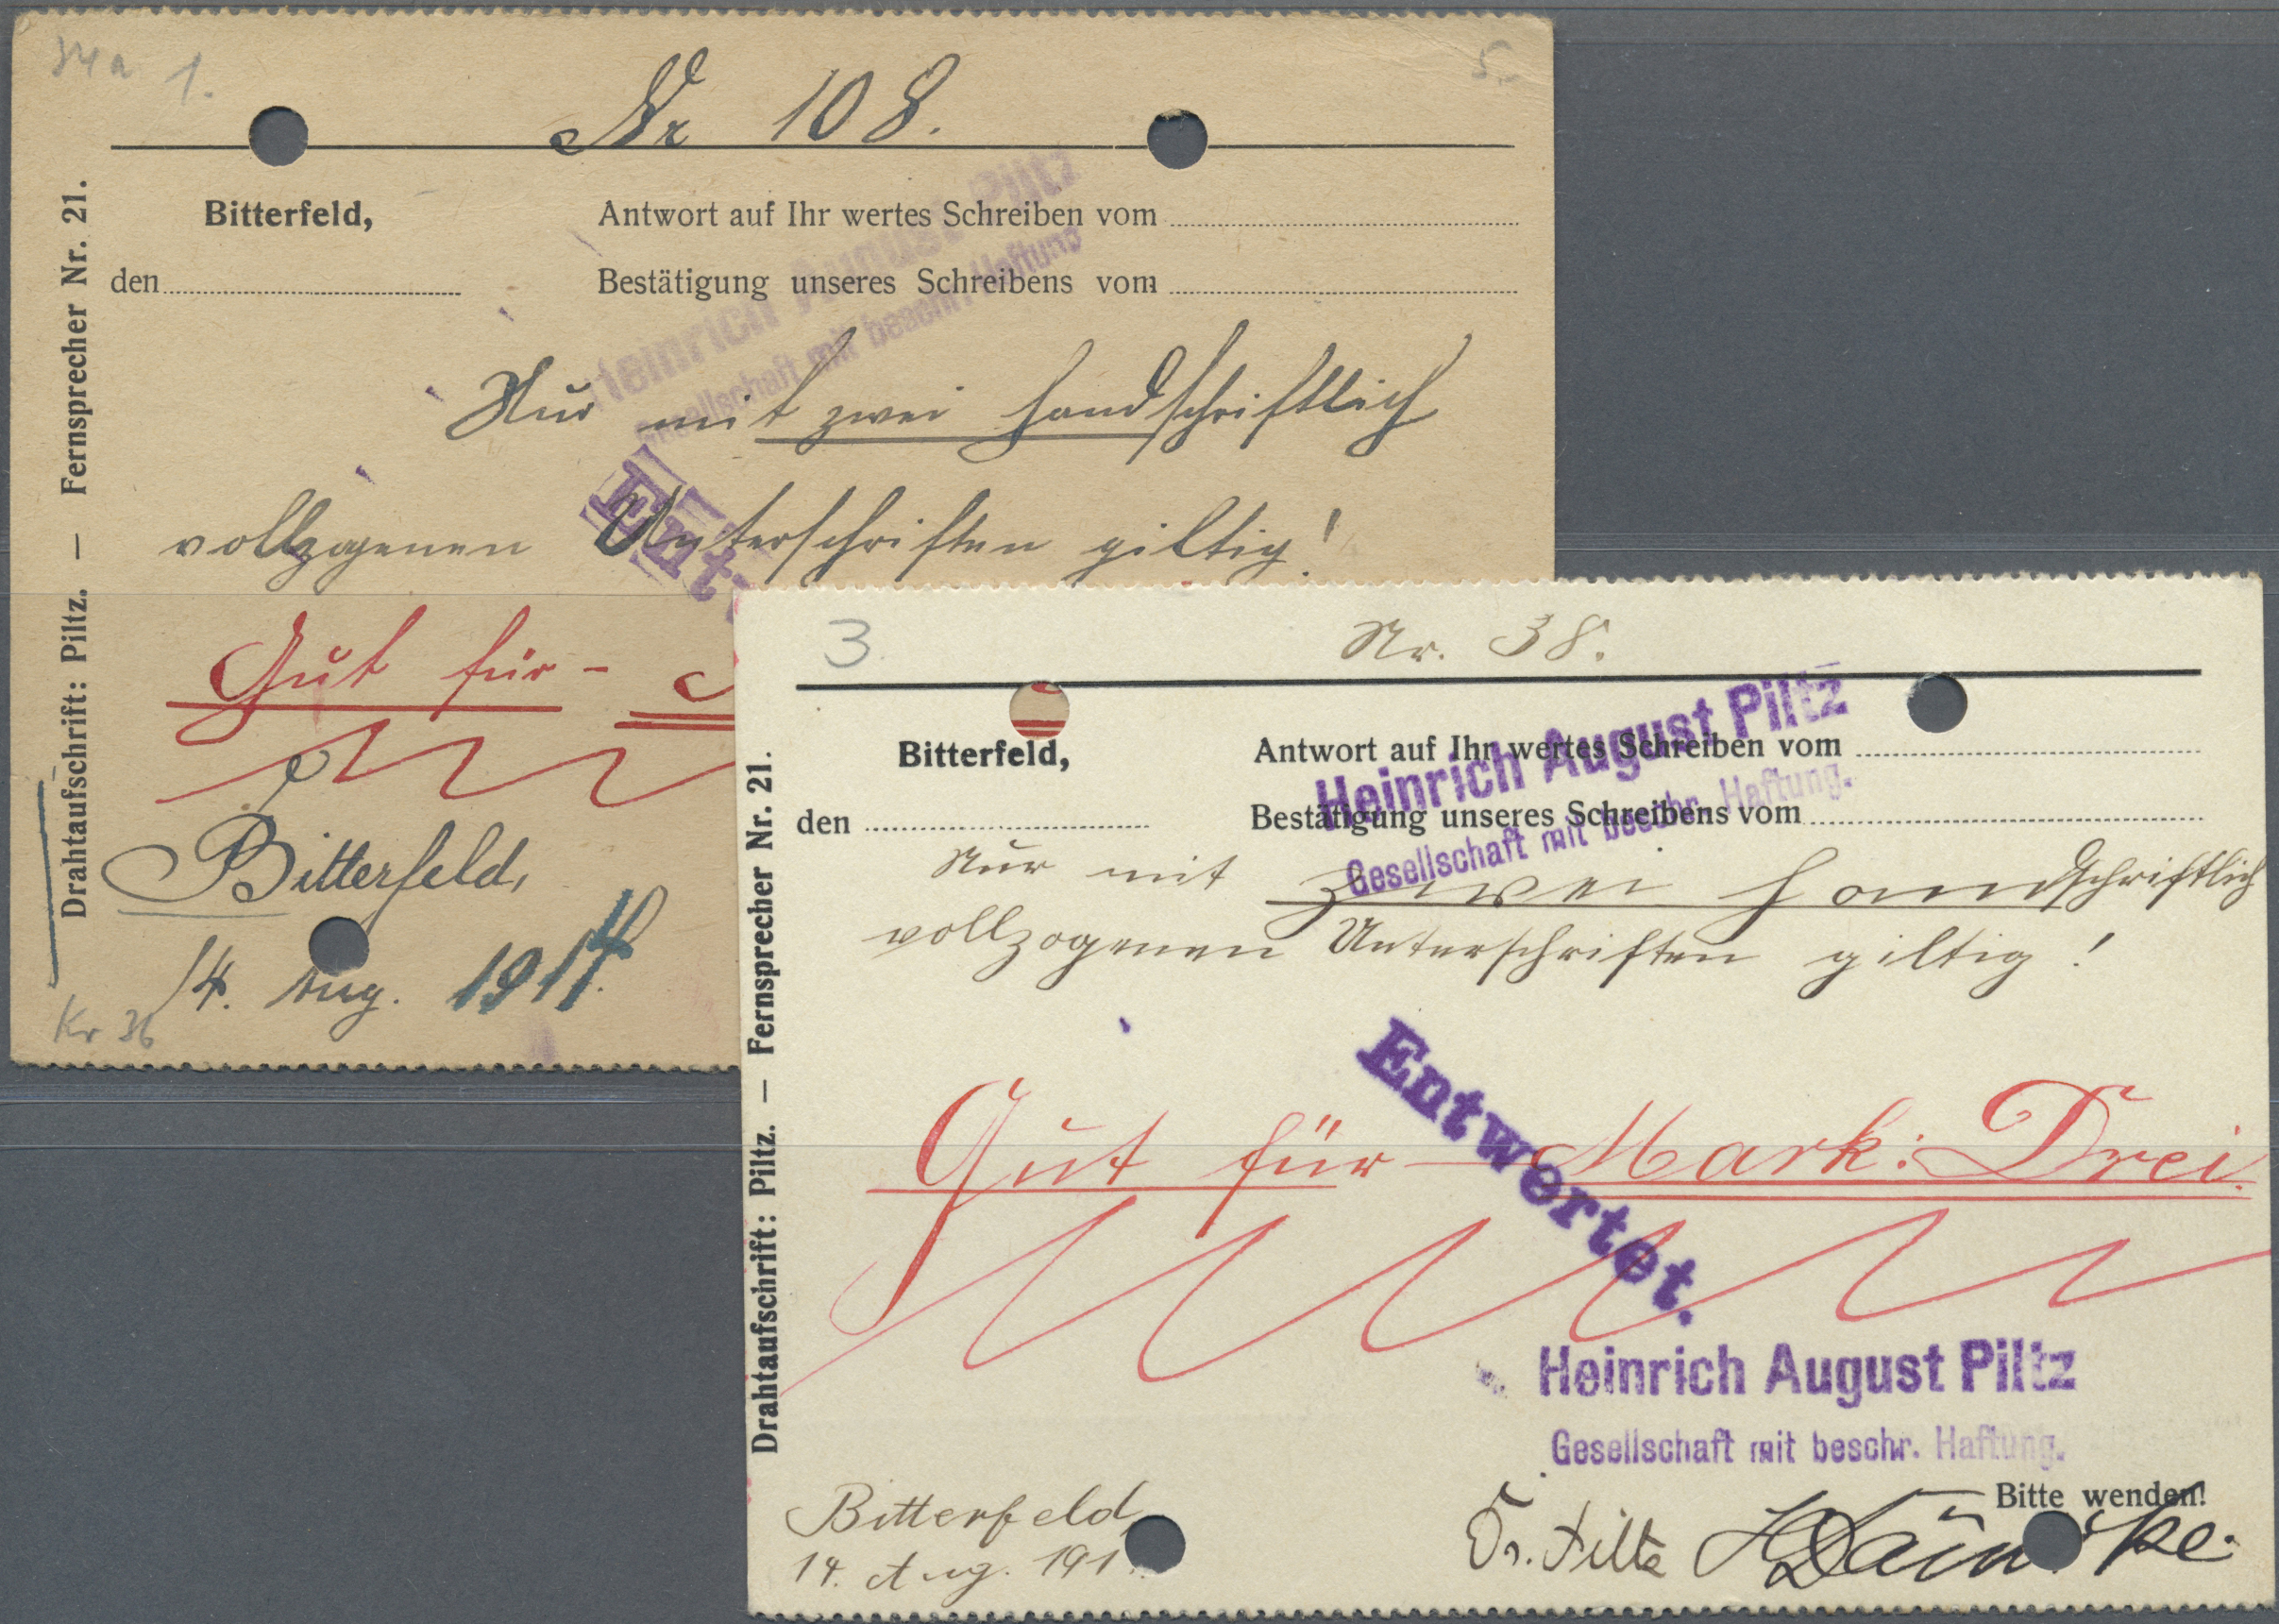 34a 1.
5.-
Nr 108.
Bitterfeld,
Antwort auf Ihr wertes Schreiben vom
den
Bestätigung unseres Schreibens vom
Heinrich August Piltz
Gesellschaft mit beschr. Haftung
Nur mit zwei handschriftlich
vollzogenen Unterschriften giltig!
Ent
Gut für -
Bitterfeld,
14. Aug. 1914.
Kr 36
Drahtaufschrift: Piltz. — Fernsprecher Nr. 21.
3.
Nr. 38.
Bitterfeld,
Antwort auf Ihr wertes Schreiben vom
den
Bestätigung unseres Schreibens vom
Heinrich August Piltz
Gesellschaft mit beschr. Haftung.
Nur mit zwei handschriftlich
vollzogenen Unterschriften giltig!
Entwertet.
Gut für — Mark: Drei.
Heinrich August Piltz
Gesellschaft mit beschr. Haftung.
Bitte wenden!
Bitterfeld,
14. Aug. 191
Drahtaufschrift: Piltz. — Fernsprecher Nr. 21.